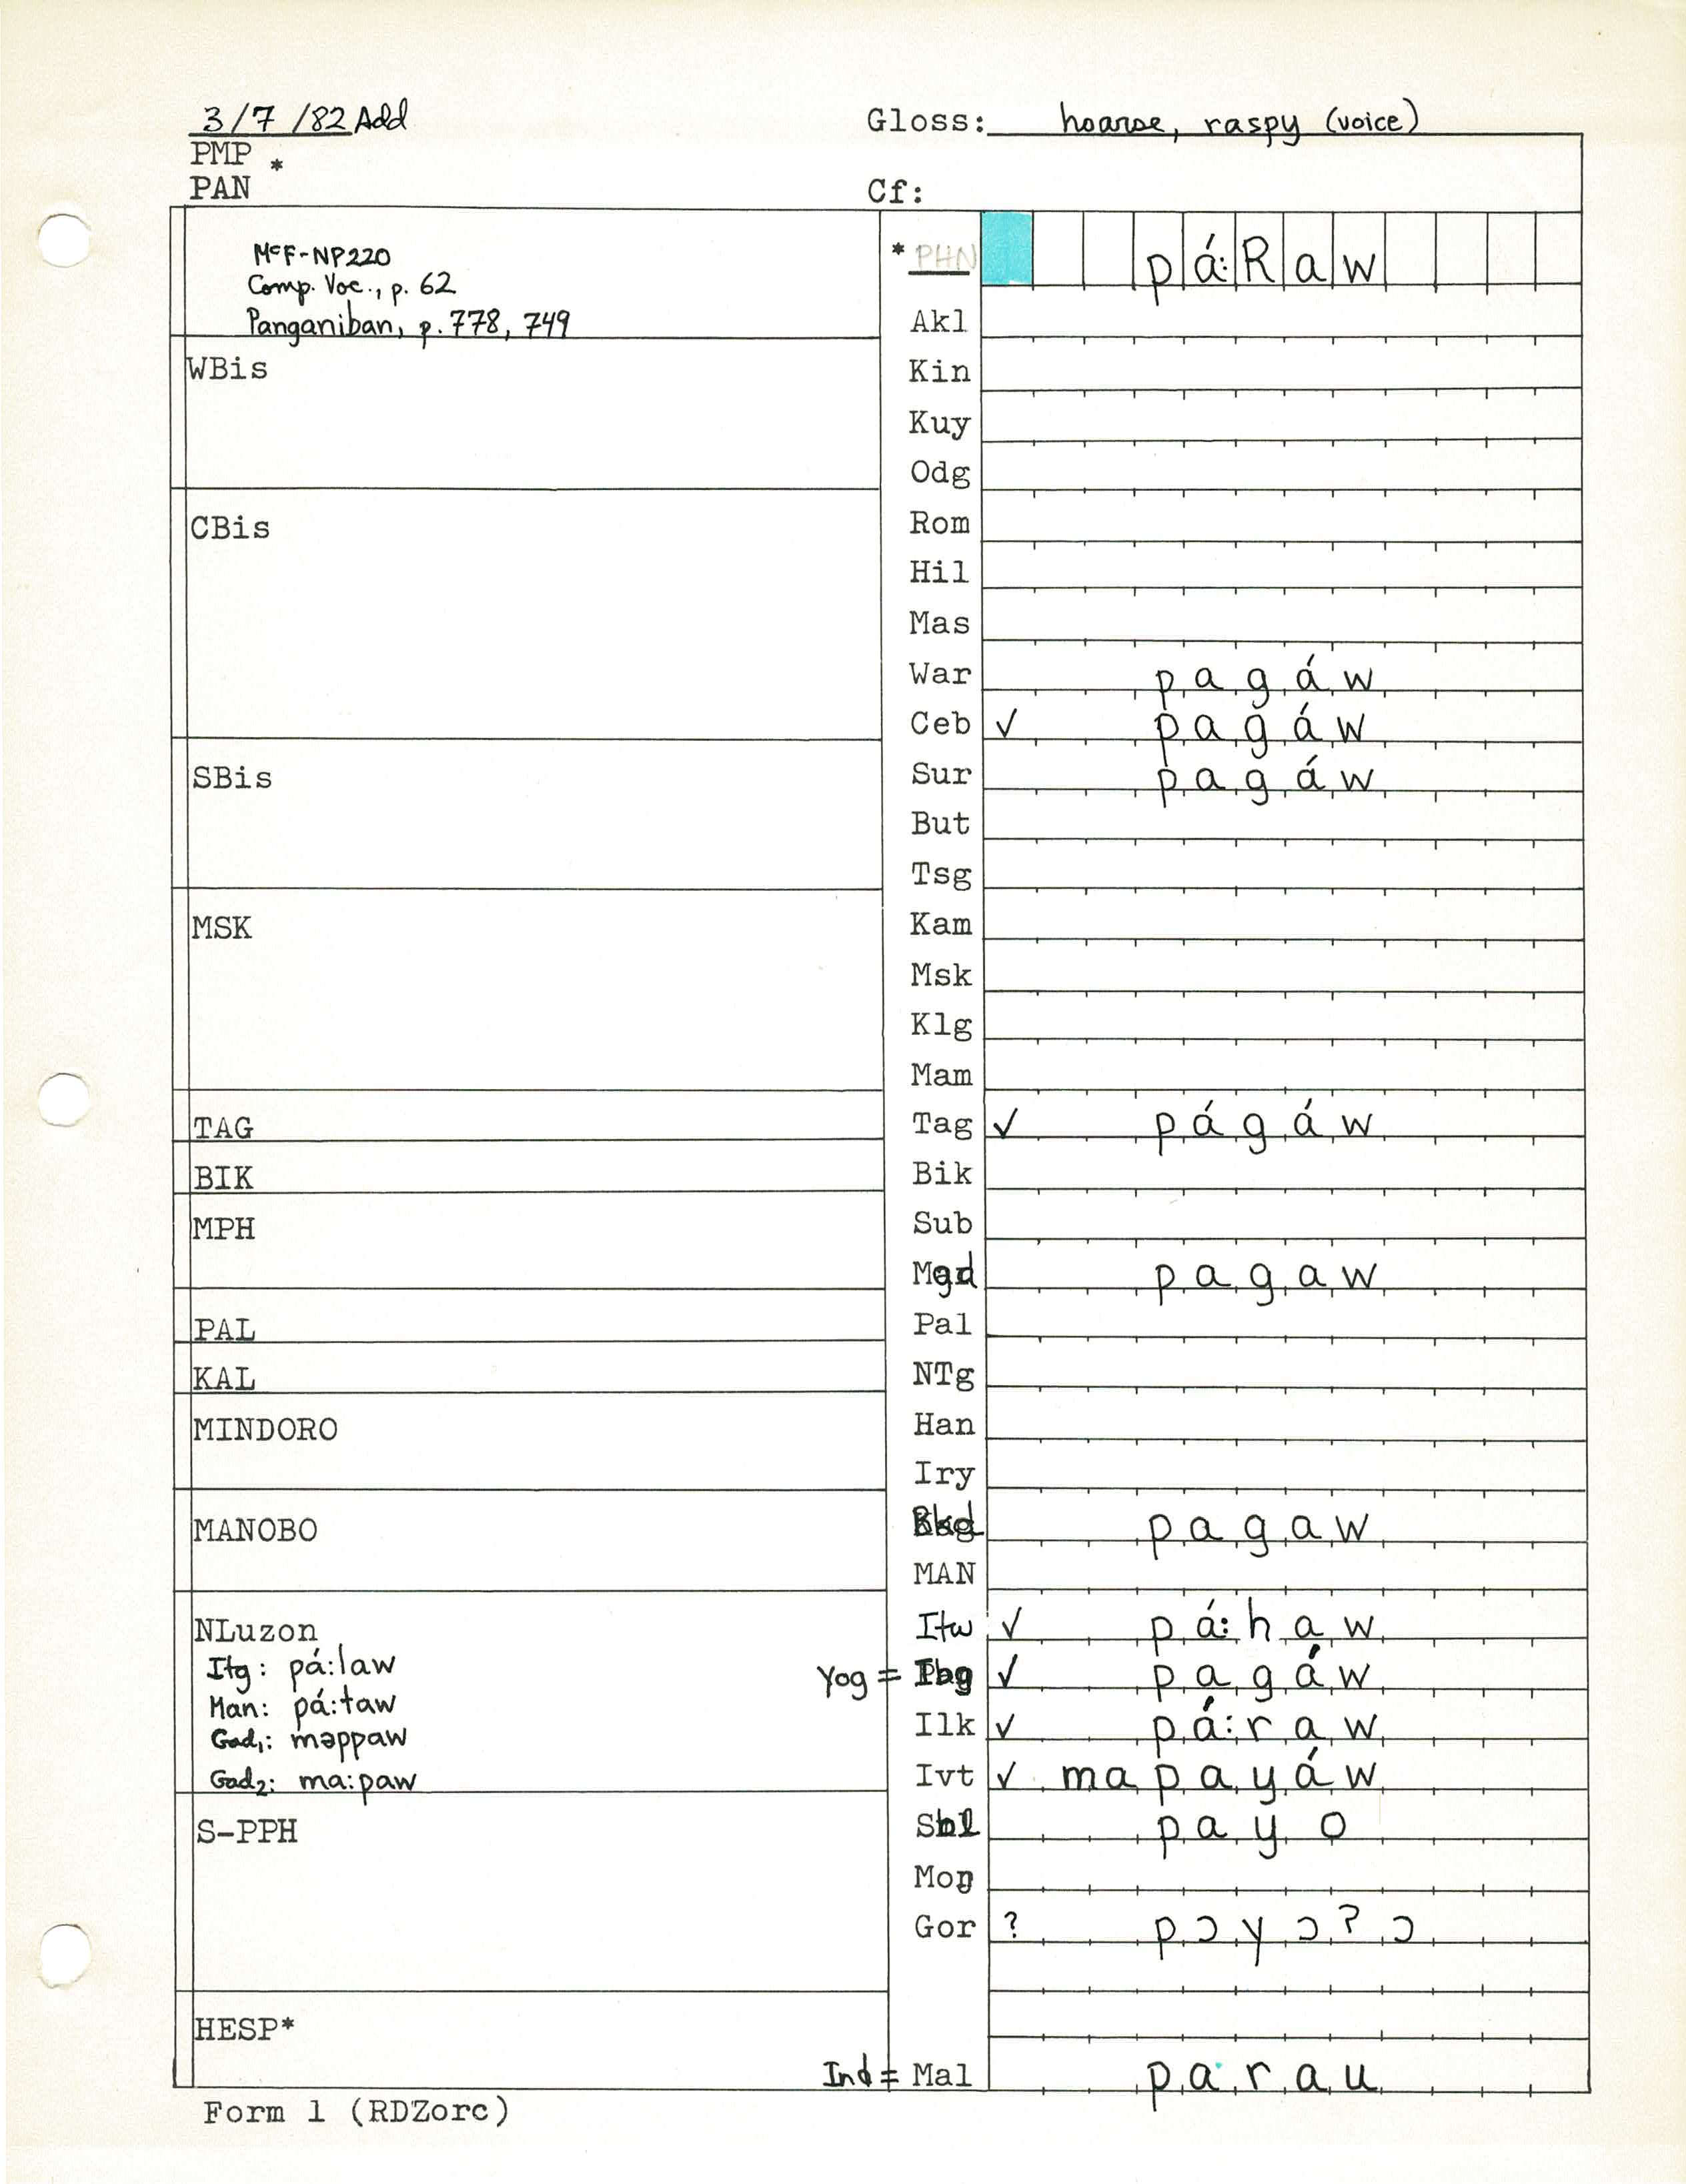 3/7/82 Add
Gloss: hoarse, raspy (voice)
PMP *
PAN
Cf:
McF-NP220
Comp. Voc., p. 62
Panganiban, p. 778, 749
* PHN pá:Raw
Akl
WBis
Kin
Kuy
Odg
CBis
Rom
Hil
Mas
War pagáw
Ceb ✓ pagáw
SBis
Sur pagáw
But
Tsg
MSK
Kam
Msk
Klg
Mam
TAG
Tag ✓ págáw
BIK
Bik
MPH
Sub
Mgd pagaw
PAL
Pal
KAL
NTg
MINDORO
Han
Iry
MANOBO
Bkd pagaw
MAN
NLuzon
Itg: pá:law
Man: pá:taw
Gad1: məppaw
Gad2: ma:paw
Itw ✓ pá:haw
Yog = Ibg ✓ pagáw
Ilk ✓ pá:raw
Ivt ✓ mapayáw
S-PPH
Sbl payo
Moŋ
Gor ? pɔyɔʔɔ
HESP*
Ind = Mal parau
Form 1 (RDZorc)